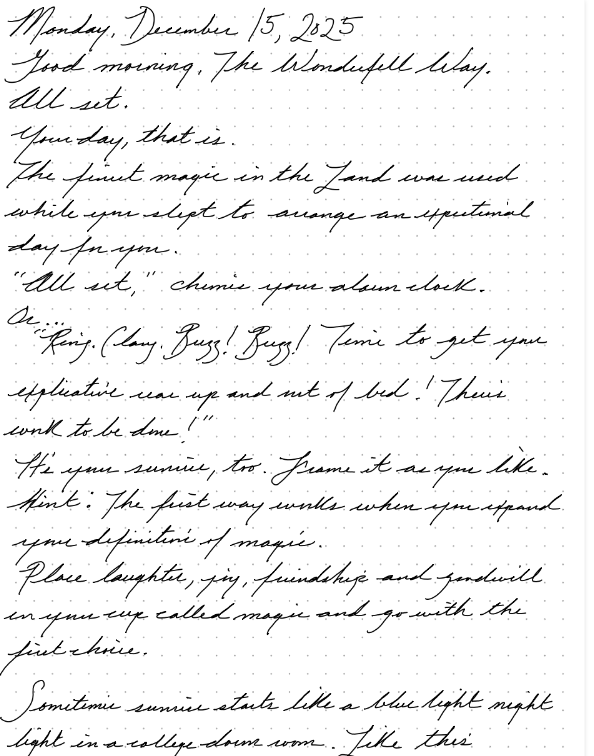 Monday, December 15, 2025
Good morning, The Wonderfell Way.
All set.
Your day, that is.
The finest magic in the Land was used
while you slept to arrange an exceptional
day for you.
"All set," chimes your alarm clock.
Or...
"Ring. Clang. Buzz! Buzz! Time to get your
explicative rear up and out of bed! There's
work to be done!"
It's your sunrise, too. Frame it as you like.
Hint: The first way works when you expand
your definition of magic.
Place laughter, joy, friendship and goodwill
in your cup called magic and go with the
first choice.
Sometimes sunrise starts like a blue light night
light in a college dorm room. Like this